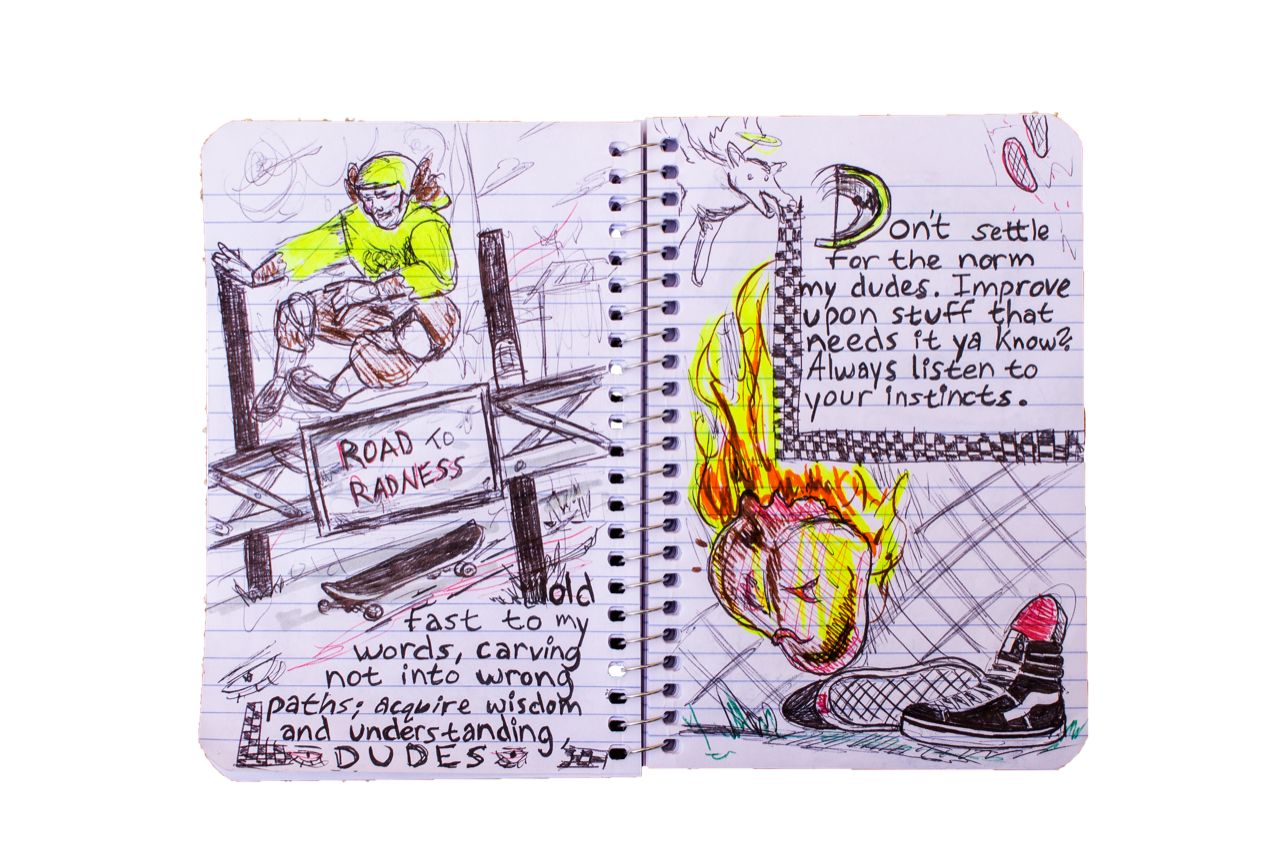 ROAD TO
RADNESS
Hold
Fast to my
words, carving
not into wrong
paths; acquire wisdom
and understanding,
DUDES
Don't settle
for the norm
my dudes. Improve
upon stuff that
needs it ya know?
Always listen to
your instincts.